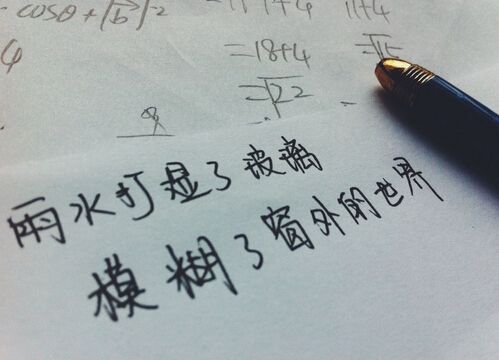 cosθ+|b|²
11+4
=18+4
=√22
4
雨水打湿了玻璃
模糊了窗外的世界